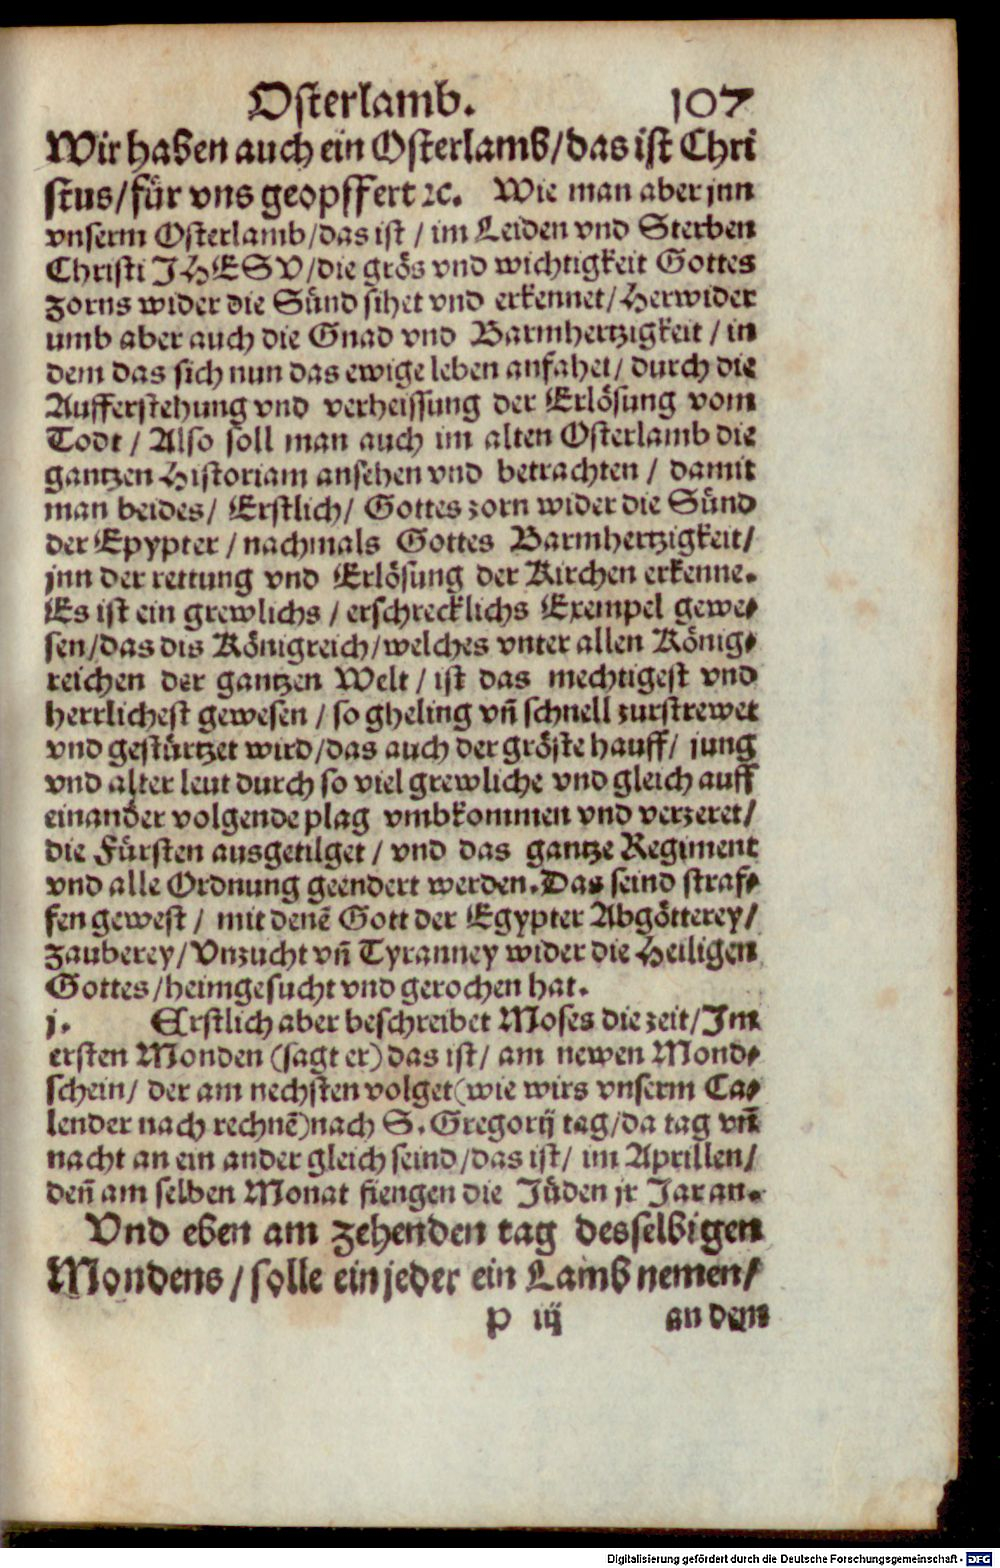 Osterlamb. 107
Wir haben auch ein Osterlamb/das ist Chri
stus/für vns geopffert ꝛc. Wie man aber jnn
vnserm Osterlamb/das ist / im Leiden vnd Sterben
Christi JHESV/die grös vnd wichtigkeit Gottes
zorns wider die Sünd sihet vnd erkennet/Herwider
umb aber auch die Gnad vnd Barmhertzigkeit / in
dem das sich nun das ewige leben anfahet/ durch die
Aufferstehung vnd verheissung der Erlösung vom
Todt / Also soll man auch im alten Osterlamb die
gantzen Historiam ansehen vnd betrachten / damit
man beides/ Erstlich/ Gottes zorn wider die Sünd
der Epypter / nachmals Gottes Barmhertzigkeit/
jnn der rettung vnd Erlösung der Kirchen erkenne.
Es ist ein grewlichs / erschrecklichs Exempel gewe⸗
sen/das dis Königreich/welches vnter allen König⸗
reichen der gantzen Welt / ist das mechtigest vnd
herrlichest gewesen / so gheling vñ schnell zurstrewet
vnd gestürtzet wird/das auch der gröste hauff/ jung
vnd alter leut durch so viel grewliche vnd gleich auff
einander volgende plag vmbkommen vnd verzeret/
die Fürsten ausgetilget / vnd das gantze Regiment
vnd alle Ordnung geendert werden. Das seind straf⸗
fen gewest / mit denẽ Gott der Egypter Abgötterey/
Zauberey/Vnzucht vñ Tyranney wider die Heiligen
Gottes/heimgesucht vnd gerochen hat.
j. Erstlich aber beschreibet Moses die zeit/Im
ersten Monden (sagt er) das ist/ am newen Mond⸗
schein/ der am nechsten volget(wie wirs vnserm Ca⸗
lender nach rechnẽ)nach S. Gregorij tag/da tag vñ
nacht an ein ander gleich seind/das ist/ im Aprillen/
deñ am selben Monat fiengen die Jüden jr Jar an.
Vnd eben am zehenden tag desselbigen
Mondens / solle ein jeder ein Lamb nemen/
p iij an dem
Digitalisierung gefördert durch die Deutsche Forschungsgemeinschaft - DFG